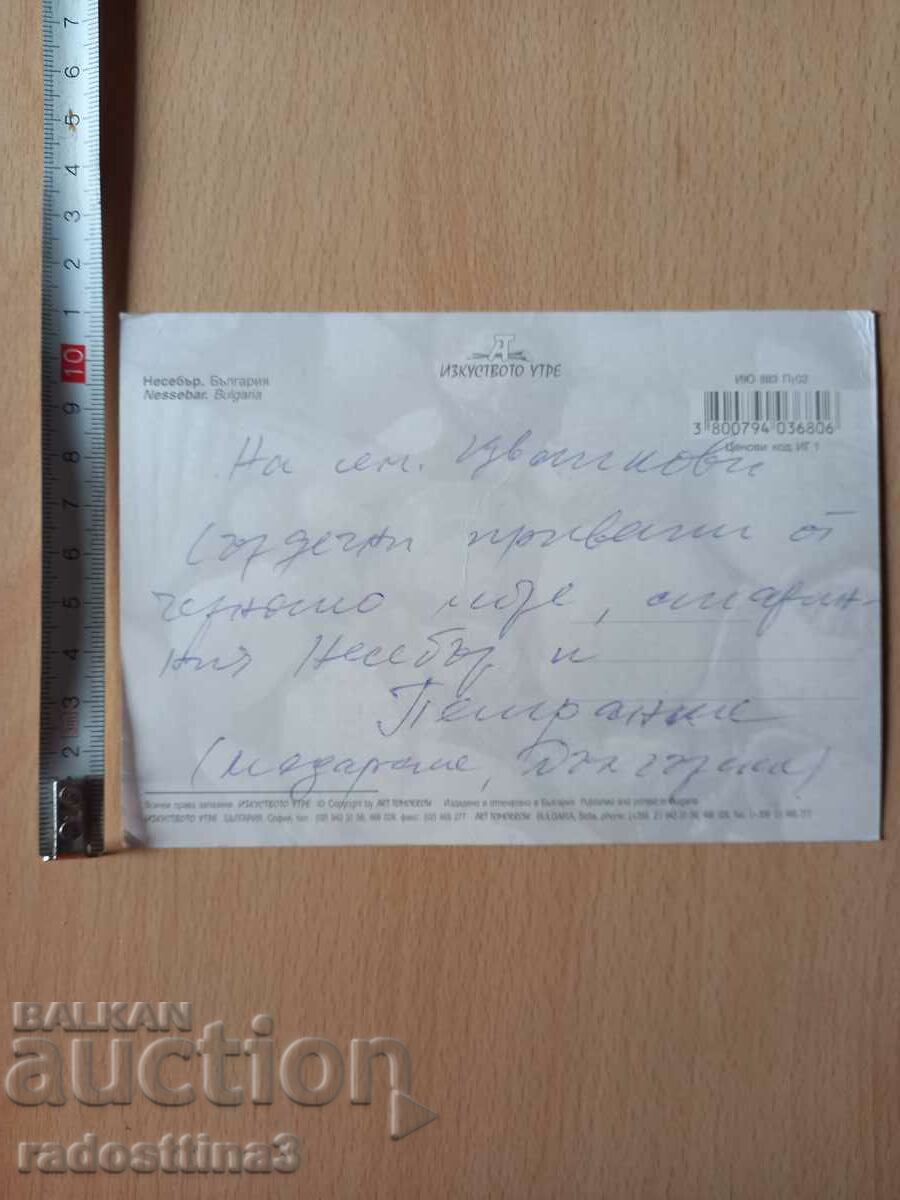 7
6
5
4
3
2
1
10
3
2
ИЗКУСТВОТО УТРЕ
Несебър. България
Nessebar. Bulgaria
ИЮ 883 П/02
3 800794 036806
Ценови код ИГ 1
На сем. Цветкови
Сърдечни привети от
черното море, старин-
ния Несебър и
Всички права запазени. ИЗКУСТВОТО УТРЕ © Copyright by ART TOMORROW Издадено и отпечатано в България Published and printed in Bulgaria
ИЗКУСТВОТО УТРЕ БЪЛГАРИЯ, София, тел. факс: ART TOMORROW BULGARIA, Sofia, phone:
BALKAN
auction
radosttina3